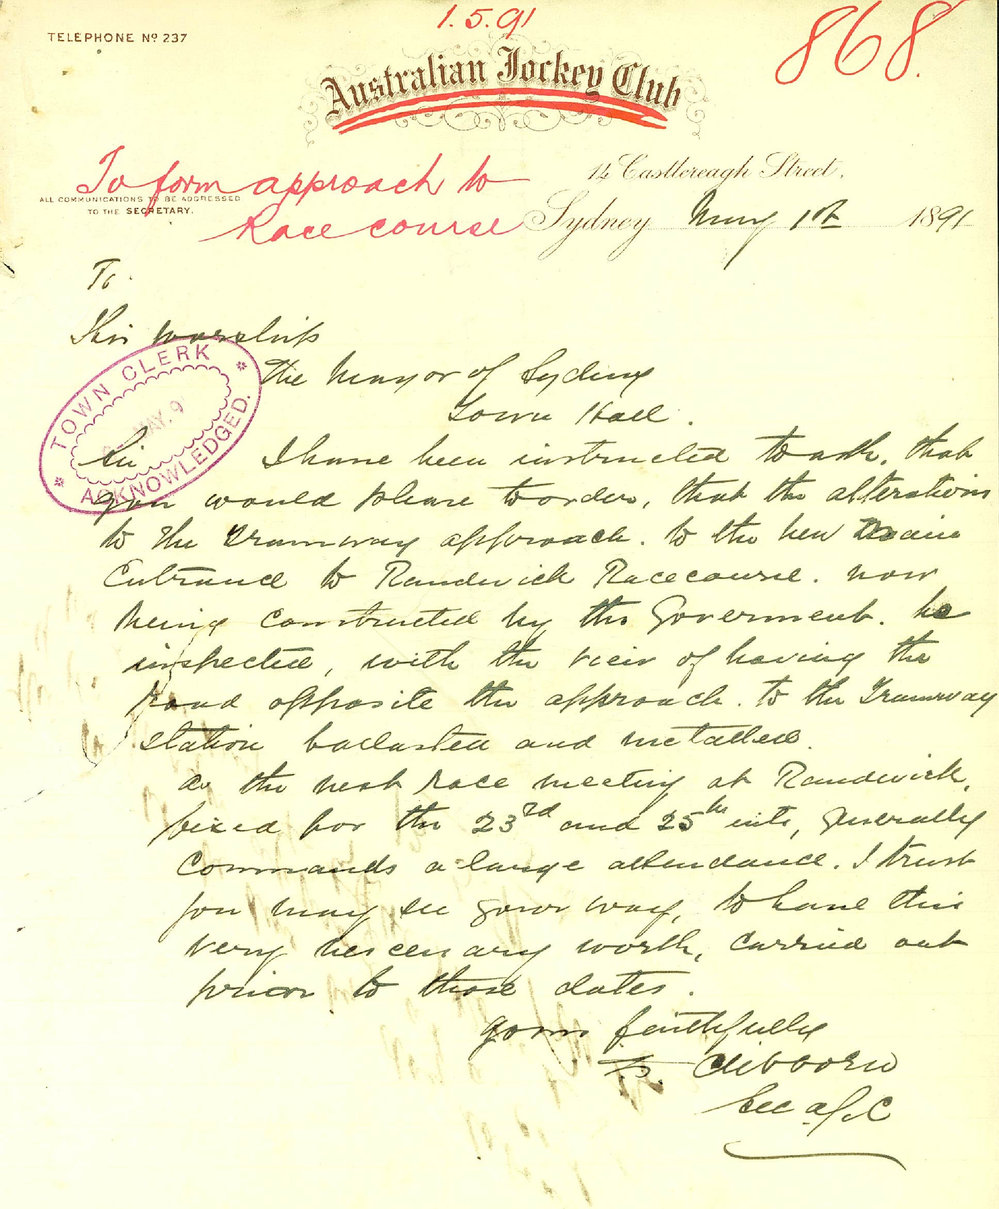 1.5.91
868.
TELEPHONE Nº 237
Australian Jockey Club
To form approach to
Race course
ALL COMMUNICATIONS TO BE ADDRESSED
TO THE SECRETARY.
14 Castlereagh Street,
Sydney May 1st 1891
To.
His worship
The Mayor of Sydney
Town Hall.
TOWN CLERK
MAY. 9
ACKNOWLEDGED.
Sir I have been instructed to ask, that
you would please to order, that the alterations
to the Tramway approach. to the new Main
Entrance to Randwick Racecourse. now
being constructed by the Government. be
inspected, with the view of having the
road opposite the approach. to the Tramway
station ballasted and metalled.
As the next race meeting at Randwick,
fixed for the 23rd and 25th inst, generally
commands a large attendance. I trust
you may see your way, to have this
very nescessary work, carried out
prior to those dates.
Yours faithfully
T. Clibborn
Sec A.J.C